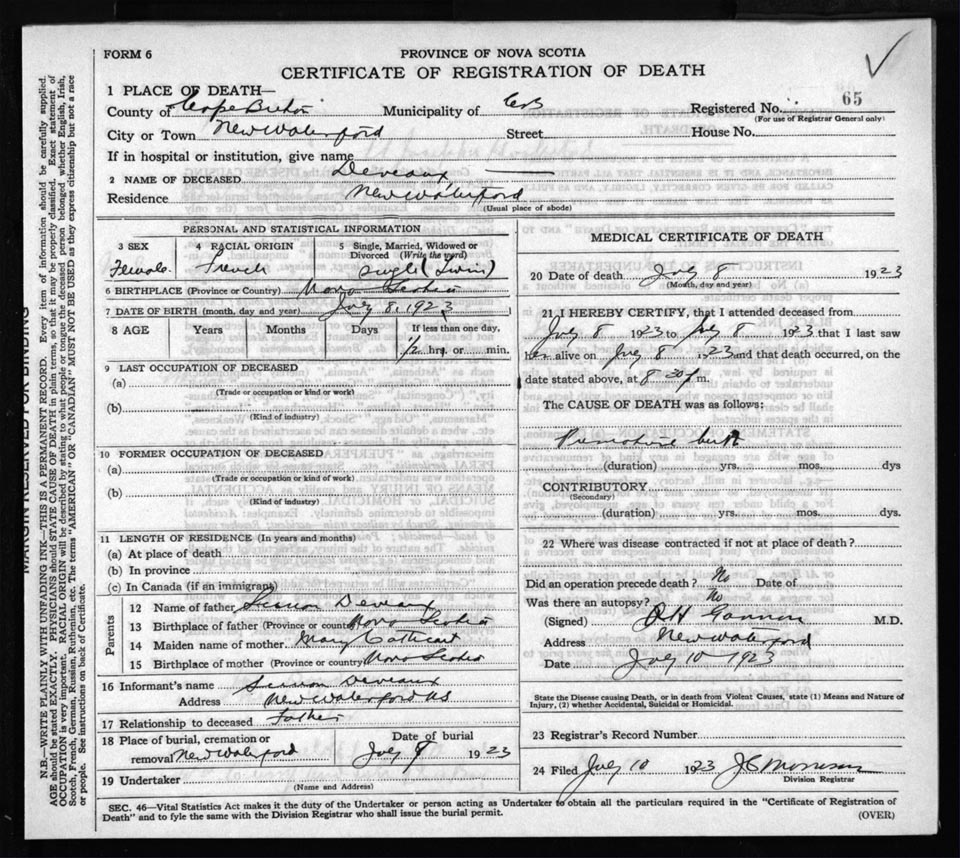 FORM 6
PROVINCE OF NOVA SCOTIA
CERTIFICATE OF REGISTRATION OF DEATH—
65
1 PLACE OF DEATH—
County of Cape Breton Municipality of CB Registered No.
(For use of Registrar General only)
City or Town New Waterford Street House No.
If in hospital or institution, give name
2 NAME OF DECEASED Deveaux
Residence New Waterford
(Usual place of abode)
PERSONAL AND STATISTICAL INFORMATION
3 SEX 4 RACIAL ORIGIN 5 Single, Married, Widowed or Divorced (Write the word)
Female French single (Twin)
6 BIRTHPLACE (Province or Country) Nova Scotia
7 DATE OF BIRTH (month, day and year) July 8, 1923
8 AGE Years Months Days If less than one day,
1/2 hrs. or min.
9 LAST OCCUPATION OF DECEASED
(a)
(Trade or occupation or kind or work)
(b)
(Kind of industry)
10 FORMER OCCUPATION OF DECEASED
(a)
(Trade or occupation or kind of work)
(b)
(Kind of industry)
11 LENGTH OF RESIDENCE (In years and months)
(a) At place of death
(b) In province
(c) In Canada (if an immigrant)
Parents
12 Name of father Simon Deveaux
13 Birthplace of father (Province or country) Nova Scotia
14 Maiden name of mother Mary Cathcart
15 Birthplace of mother (Province or country) Nova Scotia
16 Informant's name Simon Deveaux
Address New Waterford NS
17 Relationship to deceased Father
18 Place of burial, cremation or Date of burial
removal New Waterford July 9 1923
19 Undertaker
(Name and Address)
MEDICAL CERTIFICATE OF DEATH
20 Date of death July 8 1923
(Month, day and year)
21 I HEREBY CERTIFY, that I attended deceased from
July 8 1923 to July 8 1923 that I last saw
her alive on July 8 1923 and that death occurred, on the
date stated above, at 8 30 p m.
The CAUSE OF DEATH was as follows:
Premature birth
(duration) yrs. mos. dys
CONTRIBUTORY
(Secondary)
(duration) yrs. mos. dys.
22 Where was disease contracted if not at place of death?
Did an operation precede death? No Date of
Was there an autopsy? No
(Signed) Gannon M.D.
Address New Waterford
Date July 10 1923
State the Disease causing Death, or in death from Violent Causes, state (1) Means and Nature of
Injury, (2) whether Accidental, Suicidal or Homicidal.
23 Registrar's Record Number
24 Filed July 10 1923 J C Morrison
Division Registrar
SEC. 46—Vital Statistics Act makes it the duty of the Undertaker or person acting as Undertaker to obtain all the particulars required in the "Certificate of Registration of
Death" and to fyle the same with the Division Registrar who shall issue the burial permit.
(OVER)
MARGIN RESERVED FOR BINDING
N.B.—WRITE PLAINLY WITH UNFADING INK—THIS IS A PERMANENT RECORD. Every item of information should be carefully supplied.
AGE should be stated EXACTLY. PHYSICIANS should STATE CAUSE OF DEATH in plain terms, so that it may be properly classified. Exact statement of
OCCUPATION is very important. RACIAL ORIGIN will be described by stating to what people or tongue the deceased person belonged, whether English, Irish,
Scotch, French, German, Russian, Ruthenian, etc. The terms "AMERICAN" OR "CANADIAN" MUST NOT BE USED as they express citizenship but not a race
or people. See instructions on back of Certificate.